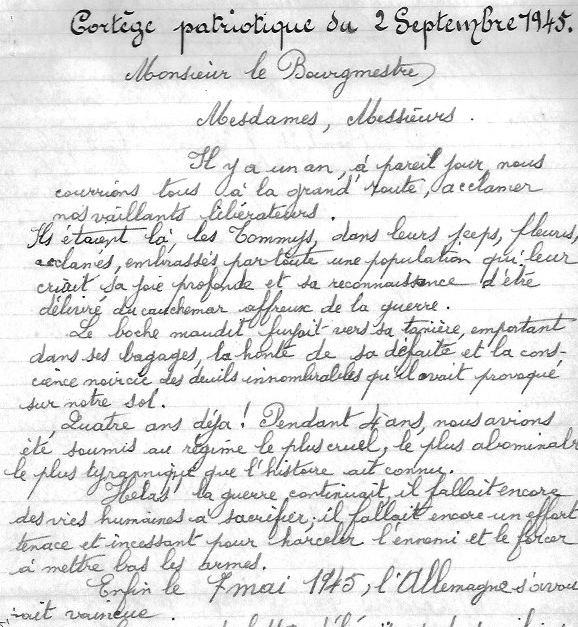 Cortège patriotique du 2 Septembre 1945.
Monsieur le Bourgmestre,
Mesdames, Messieurs.
Il y a un an, à pareil jour, nous
courrions tous à la grand'route, acclamer
nos vaillants libérateurs.
Ils étaient là, les Tommys, dans leurs jeeps, fleuris,
acclamés, embrassés par toute une population qui leur
criait sa joie profonde et sa reconnaissance d'être
délivré du cauchemar affreux de la guerre.
Le boche maudit fuyait vers sa tanière, emportant
dans ses bagages, la honte de sa défaite et la cons-
cience noircie des deuils innombrables qu'il avait provoqué
sur notre sol.
Quatre ans déja! Pendant 4 ans, nous avions
été soumis au régime le plus cruel, le plus abominable
le plus tyrannique que l'histoire ait connu.
Hélas, la guerre continuait, il fallait encore
des vies humaines à sacrifier, il fallait encore un effort
tenace et incessant pour harceler l'ennemi et le forcer
à mettre bas les armes.
Enfin le 7 mai 1945, l'Allemagne s'avou
ait vaincue.